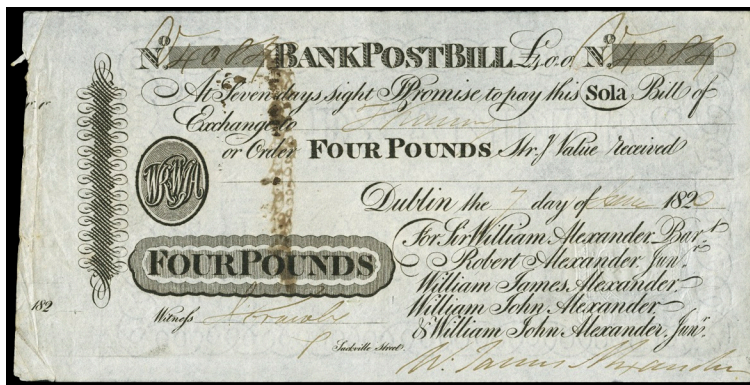 No. 4084 BANK POST BILL £4.0.0 No. 4084
At Seven days sight I Promise to pay this Sola Bill of
Exchange to
or Order FOUR POUNDS Str.g Value received
WRWA
Dublin the 7 day of June 1820
For Sir William Alexander Bar.t
Robert Alexander Jun.r
FOUR POUNDS
William James Alexander
William John Alexander
182
Witness
& William John Alexander Jun.r
Sackville Street
W. James Alexander